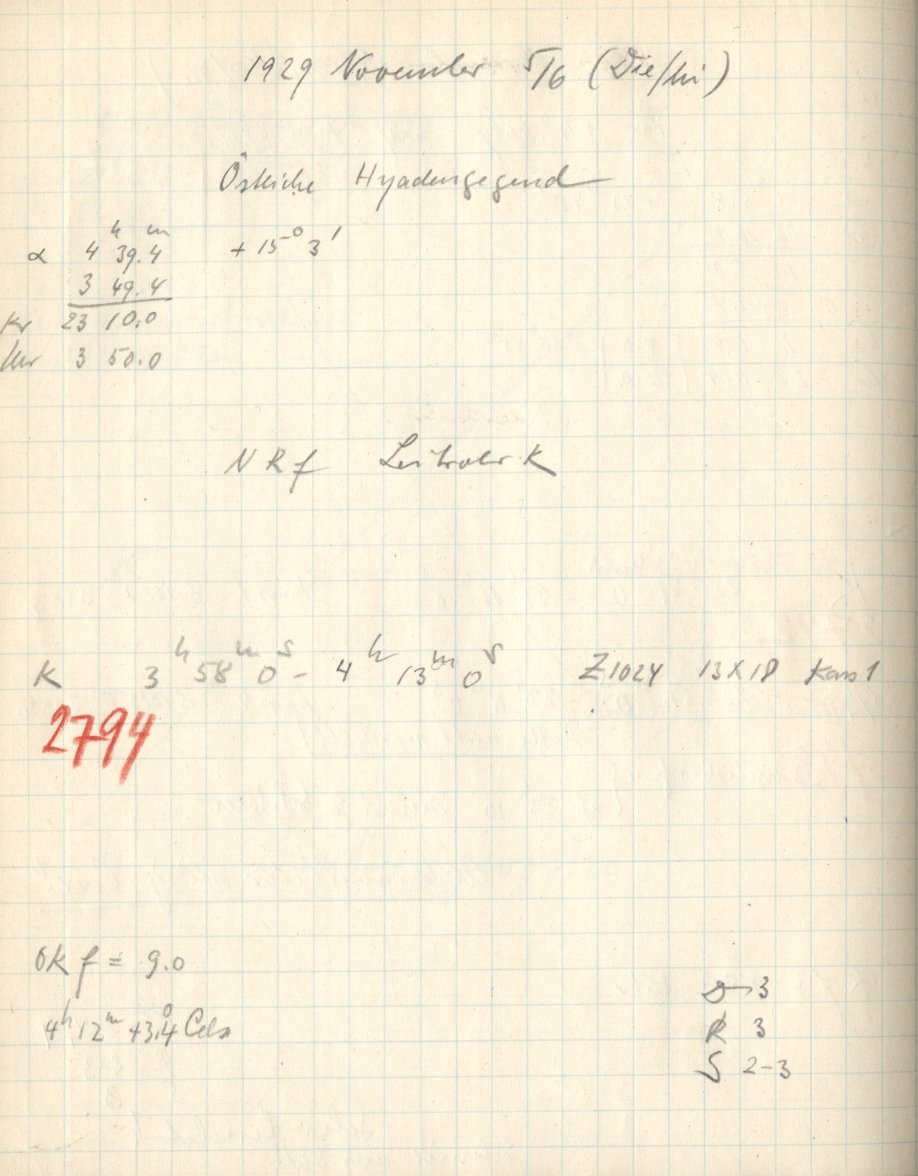 1929 November 5/6 (Die/Mi)
Östliche Hyadengegend
h m
α 4 39.4 + 15° 3'
3 49.4
Kr 23 10.0
Uhr 3 50.0
NRf Leitrohr K
K 3h 58m 0s - 4h 13m 0s Z1024 13X18 Kass 1
2794
OK f = 9.0
4h 12m +3.4° Cels
D 3
R 3
S 2-3